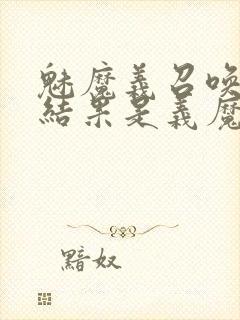 魅魔義召喚
結果是義魔
黯奴